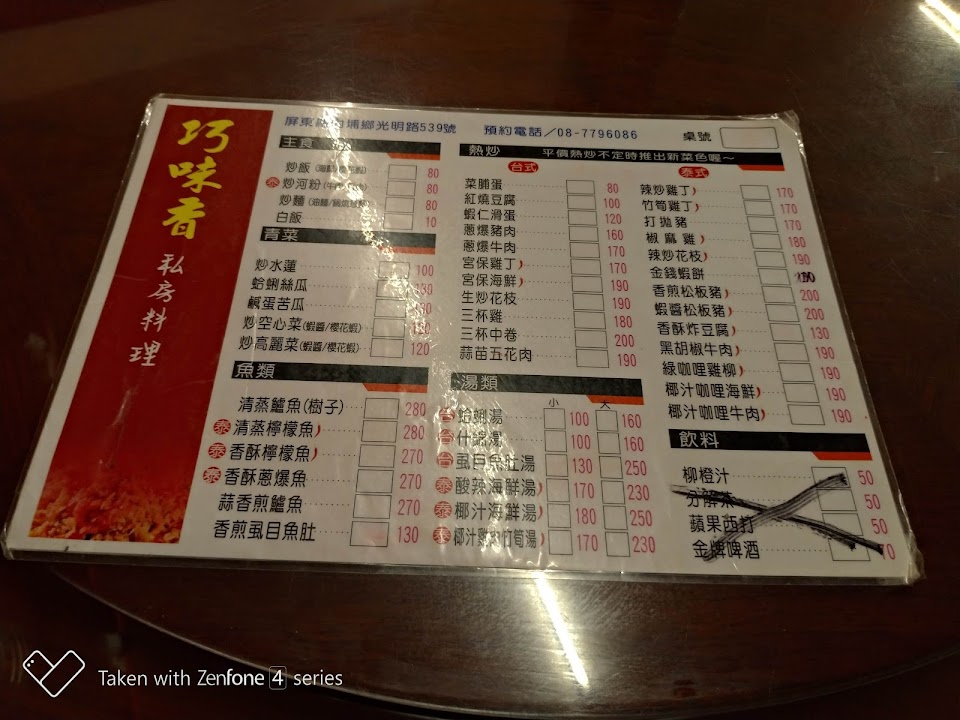 巧味香
私房料理
屏東縣 埔鄉光明路539號 預約電話/08-7796086 桌號
主食
炒飯 80
泰 炒河粉 80
炒麵 80
白飯 10
青菜
炒水蓮 100
蛤蜊絲瓜 130
鹹蛋苦瓜
炒空心菜(蝦醬/櫻花蝦)
炒高麗菜(蝦醬/櫻花蝦) 120
魚類
清蒸鱸魚(樹子) 280
泰 清蒸檸檬魚 280
泰 香酥檸檬魚 270
泰 香酥蔥爆魚 270
蒜香煎鱸魚 270
香煎虱目魚肚 130
熱炒 平價熱炒不定時推出新菜色喔~
台式
菜脯蛋 80
紅燒豆腐 100
蝦仁滑蛋 120
蔥爆豬肉 160
蔥爆牛肉 170
宮保雞丁 170
宮保海鮮 190
生炒花枝 190
三杯雞 180
三杯中卷 200
蒜苗五花肉 190
湯類
小 大
台 蛤蜊湯 100 160
台 什錦湯 100 160
台 虱目魚肚湯 130 250
泰 酸辣海鮮湯 170 230
泰 椰汁海鮮湯 180 250
泰 椰汁雞肉竹筍湯 170 230
泰式
辣炒雞丁 170
竹筍雞丁 170
打拋豬 170
椒麻雞 180
辣炒花枝 190
金錢蝦餅
香煎松板豬 200
蝦醬松板豬 200
香酥炸豆腐 130
黑胡椒牛肉 190
綠咖哩雞柳 190
椰汁咖哩海鮮 190
椰汁咖哩牛肉 190
飲料
柳橙汁 50
分解茶 50
蘋果西打 50
金牌啤酒 70
Taken with Zenfone 4 series